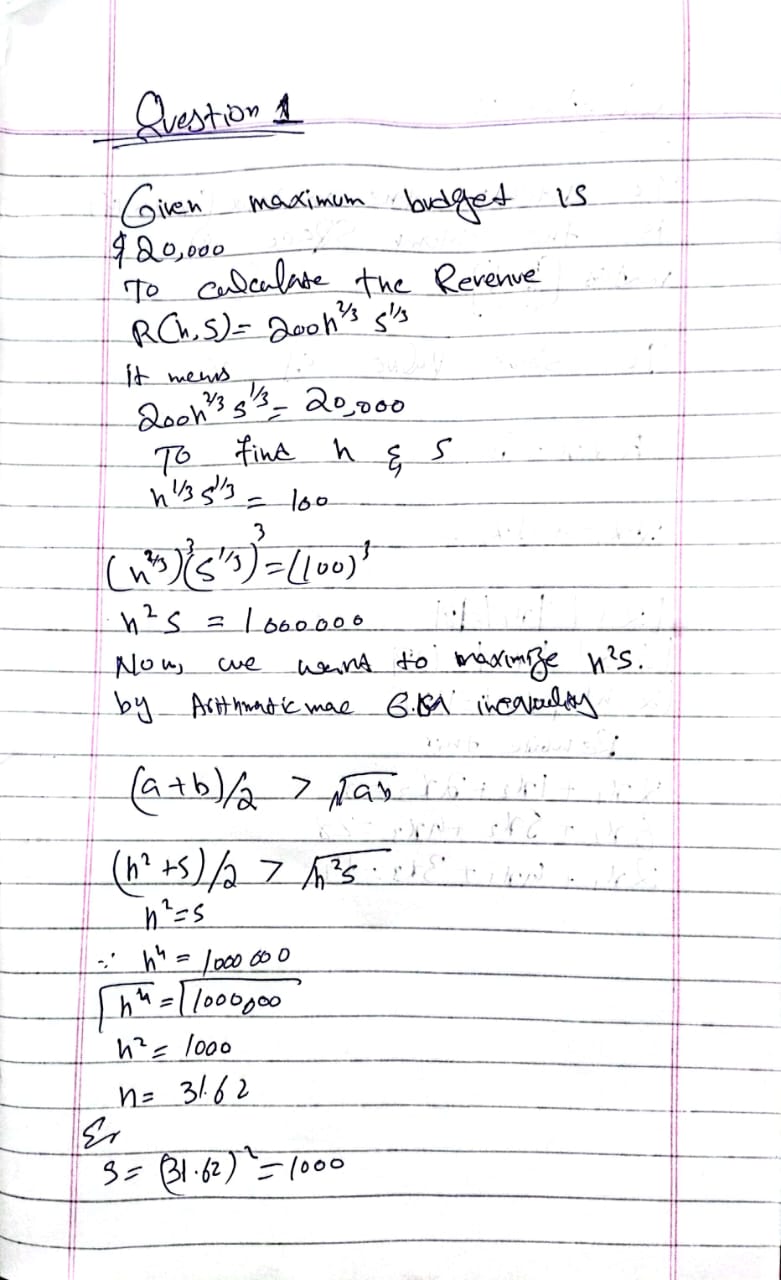 Question 1
Given maximum budget is
$20,000
To calculate the Revenue
R(h,S)= 200h^2/3 s^1/3
It mens
200h^2/3 s^1/3 = 20,000
To find h & s
h^1/3 s^1/3 = 100
(h^2/3)^3(s^1/3)^3=(100)^3
h²s = 1000000
Now, we want to maximize h²s.
by Arithmatic mae inequality
(a+b)/2 > √ab
(h²+s)/2 > √h²s
h²=s
∵ h⁴ = 1000000
√h⁴ = √1000000
h² = 1000
h= 31.62
&
S= (31.62)² = 1000